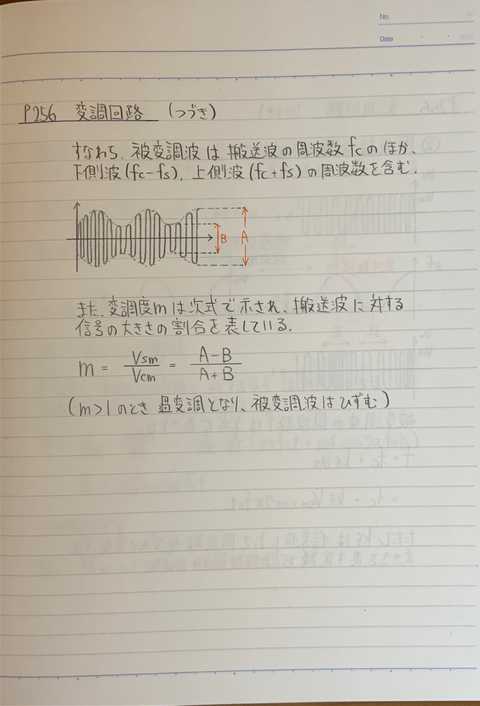 No.
Date
P256 変調回路 (つづき)
すなわち、被変調波は搬送波の周波数fcのほか、
下側波(fc-fs)、上側波(fc+fs)の周波数を含む.
B
A
また、変調度mは次式で示され、搬送波に対する
信号の大きさの割合を表している.
m = Vsm/Vcm = A-B/A+B
(m>1のとき 過変調となり、被変調波はひずむ)